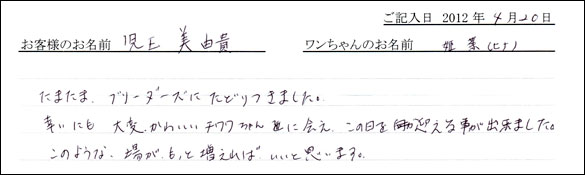 ご記入日 2012年4月20日
お客様のお名前 児玉 美由貴 ワンちゃんのお名前 姫菜(ヒナ)
たまたま、ブリーダーズにたどりつきました。
幸いにも 大変、かわいいチワワちゃん達に会え、この日を迎える事が出来ました。
このような、場が、もっと増えれば、いいと思います。